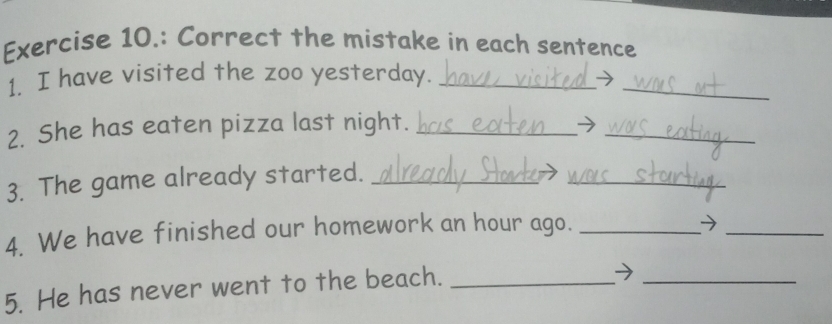 Exercise 10.: Correct the mistake in each sentence
1. I have visited the zoo yesterday. have visited → was at
2. She has eaten pizza last night. has eaten → was eating
3. The game already started. already Started → was starting
4. We have finished our homework an hour ago. ________ → ________
5. He has never went to the beach. ________ → ________